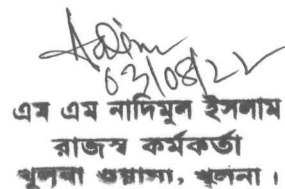 03/08/22
এম এম নাদিমুল ইসলাম
রাজস্ব কর্মকর্তা
খুলনা ওয়াসা, খুলনা।